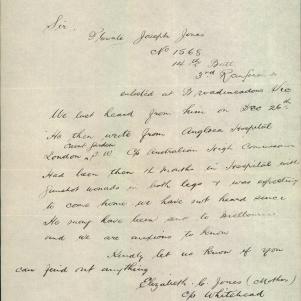 Sir,
Private Joseph Jones
No 1568
14th Batt
3rd Reinforcem
enlisted at Broadmeadows Vic
We last heard from him on Dec 26th
He then wrote from Anglsea Hospital
London S.W. C/o Australian High Commission
Had been then 7 months in Hospital with
gunshot wounds in both legs & was expecting
to come home we have not heard since
He may have been sent to Melbourne
and we are anxious to know
Kindly let us know if you
can find out anything
Elizabeth C. Jones (Mother)
C/o Whitehead